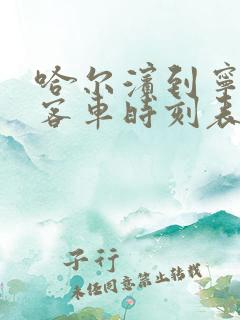 哈尔滨到宁
客车时刻表
子行
未经同意禁止转载